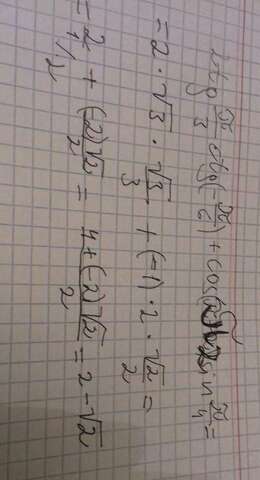 2tg π/3 ctg(-π/6) + cos sin π/4 =
= 2 · √3 · √3/3 + (-1) · 2 · √2/2 =
= 2/1\2 + (-2)√2/2 = 4+(-2)√2/2 = 2-√2